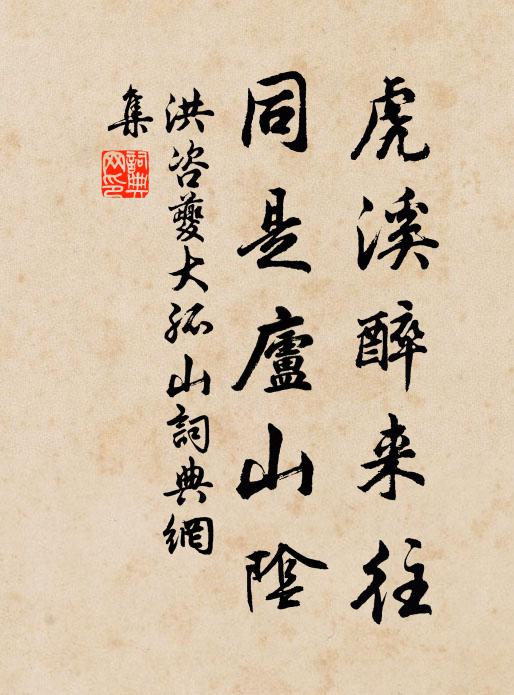 虎溪醉来往
同是廬山陰
洪咨夔大孤山詞典網
集
詞典
网印